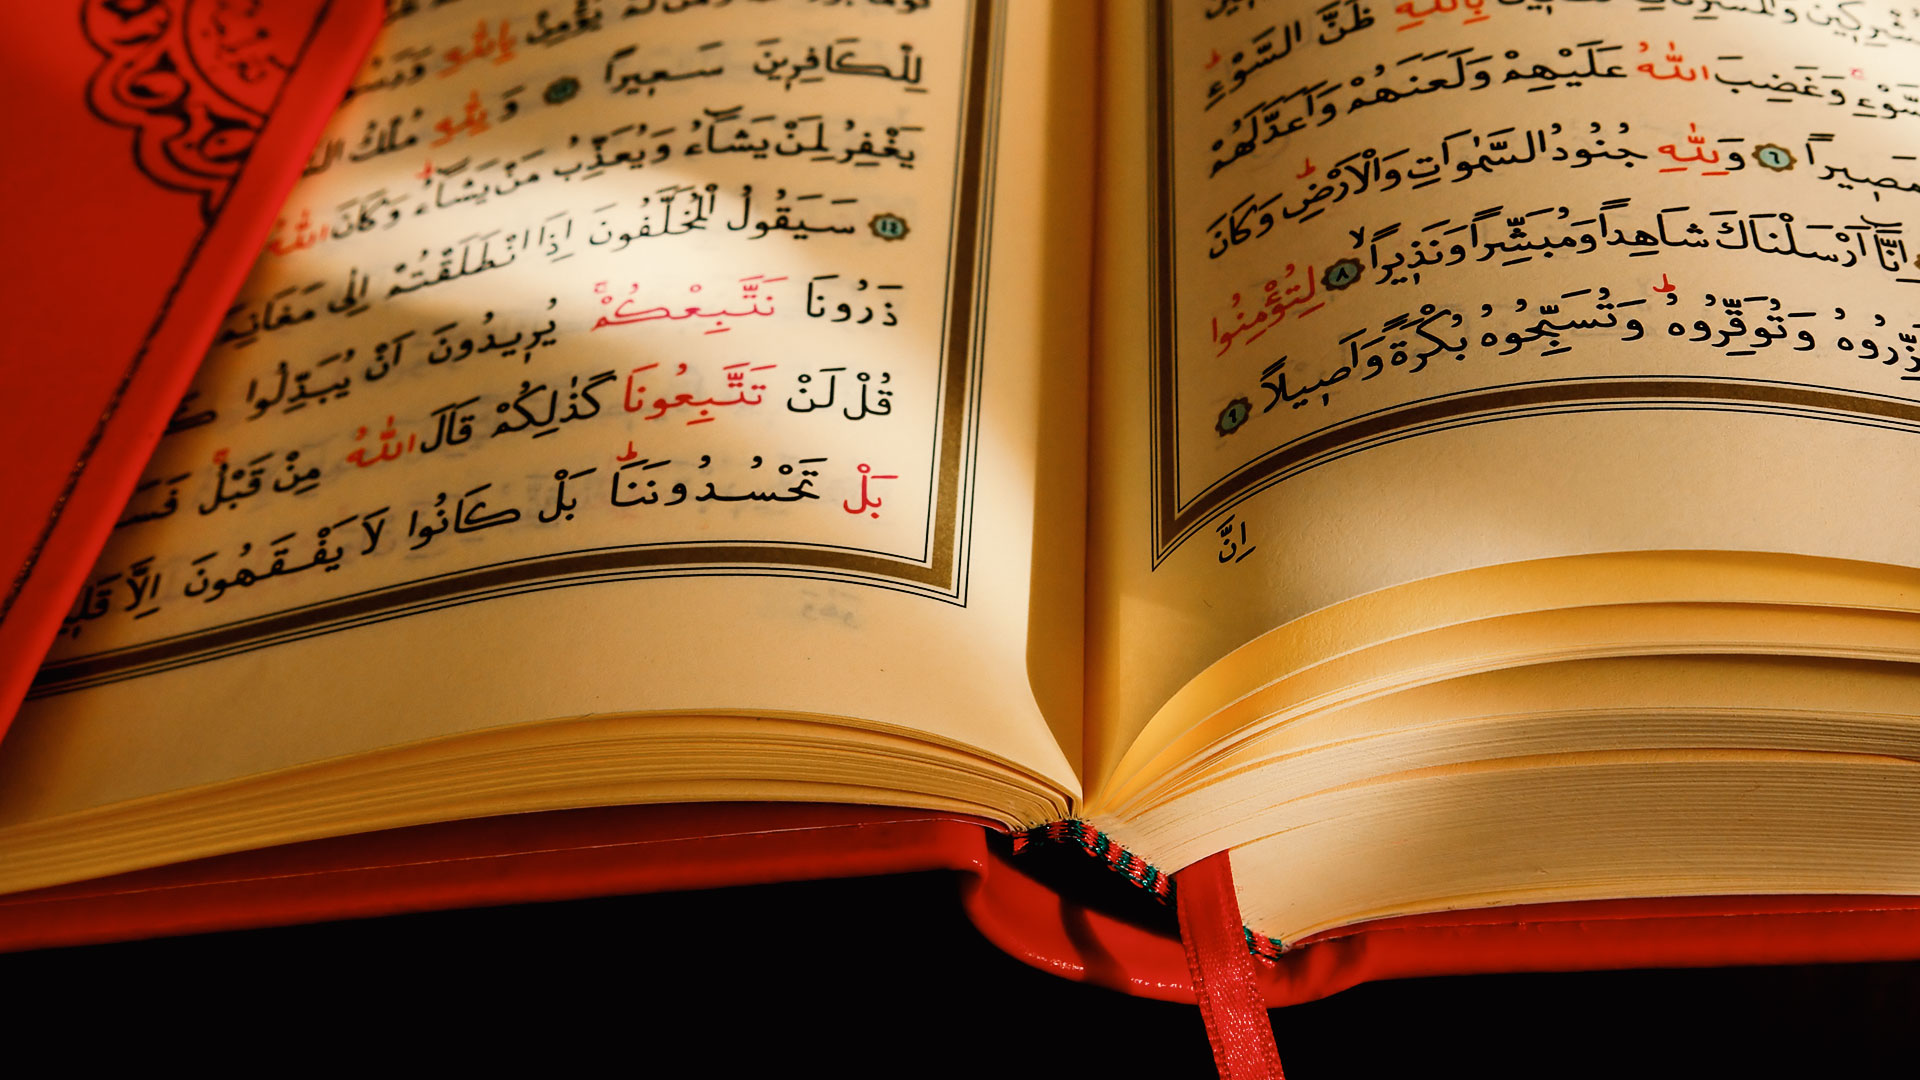 بِاللّٰهِ ظَنَّ السَّوْءِ
السَّوْءِ وَغَضِبَ اللّٰهُ عَلَيْهِمْ وَلَعَنَهُمْ وَاَعَدَّ لَهُمْ
مَصٖيراً ٦ وَلِلّٰهِ جُنُودُ السَّمٰوَاتِ وَالْاَرْضِ وَكَانَ
اِنَّٓا اَرْسَلْنَاكَ شَاهِداً وَمُبَشِّراً وَنَذٖيراً ٨ لِتُؤْمِنُوا
وَتُوَقِّرُوهُ وَتُسَبِّحُوهُ بُكْرَةً وَاَصٖيلاً ٩
اِنَّ
بِاللّٰهِ
لِلْكَافِرٖينَ سَعٖيراً ١٣ وَلِلّٰهِ مُلْكُ
يَغْفِرُ لِمَنْ يَشَٓاءُ وَيُعَذِّبُ مَنْ يَشَٓاءُ وَكَانَ اللّٰهُ
١٤ سَيَقُولُ الْمُخَلَّفُونَ اِذَا انْطَلَقْتُمْ اِلٰى مَغَانِمَ
ذَرُونَا نَتَّبِعْكُمْ يُرٖيدُونَ اَنْ يُبَدِّلُوا
قُلْ لَنْ تَتَّبِعُونَا كَذٰلِكُمْ قَالَ اللّٰهُ مِنْ قَبْلُ
بَلْ تَحْسُدُونَنَا بَلْ كَانُوا لَا يَفْقَهُونَ اِلَّا